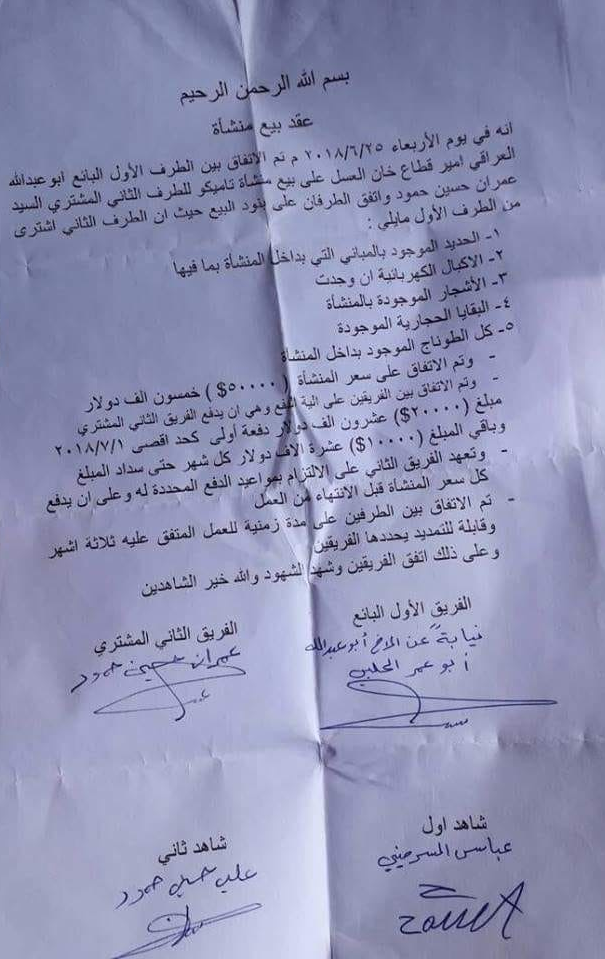 بسم الله الرحمن الرحيم
عقد بيع منشأة
انه في يوم الأربعاء ٢٠١٨/٦/٢٥ م تم الاتفاق بين الطرف الأول البائع ابو عبدالله
العراقي امير قطاع خان العسل على بيع منشأة تاميكو للطرف الثاني المشتري السيد
عمران حسين حمود واتفق الطرفان على بنود البيع حيث ان الطرف الثاني اشترى
من الطرف الأول مايلي :
١- الحديد الموجود بالمباني التي بداخل المنشأة بما فيها
٢- الاكبال الكهربائية ان وجدت
٣- الأشجار الموجودة بالمنشأة
٤- البقايا الحجارية الموجودة
٥- كل الطوناج الموجود بداخل المنشأة
- وتم الاتفاق على سعر المنشأة (٥٠٠٠٠$) خمسون الف دولار
- وتم الاتفاق بين الفريقين على الية الدفع وهي ان يدفع الفريق الثاني المشتري
مبلغ (٢٠٠٠٠$) عشرون الف دولار دفعة أولى كحد اقصى ٢٠١٨/٧/١
وباقي المبلغ (١٠٠٠٠$) عشرة الاف دولار كل شهر حتى سداد المبلغ
- وتعهد الفريق الثاني على الالتزام بمواعيد الدفع المحددة له وعلى ان يدفع
كل سعر المنشأة قبل الانتهاء من العمل
- تم الاتفاق بين الطرفين على مدة زمنية للعمل المتفق عليه ثلاثة اشهر
وقابلة للتمديد يحددها الفريقين
وعلى ذلك اتفق الفريقين وشهد الشهود والله خير الشاهدين
الفريق الأول البائع
نيابة عن الاخ أبو عبدالله
أبو عمر الحلبي
الفريق الثاني المشتري
عمران حسين حمود
شاهد اول
عباس السرميني
شاهد ثاني
علي حسين حمود